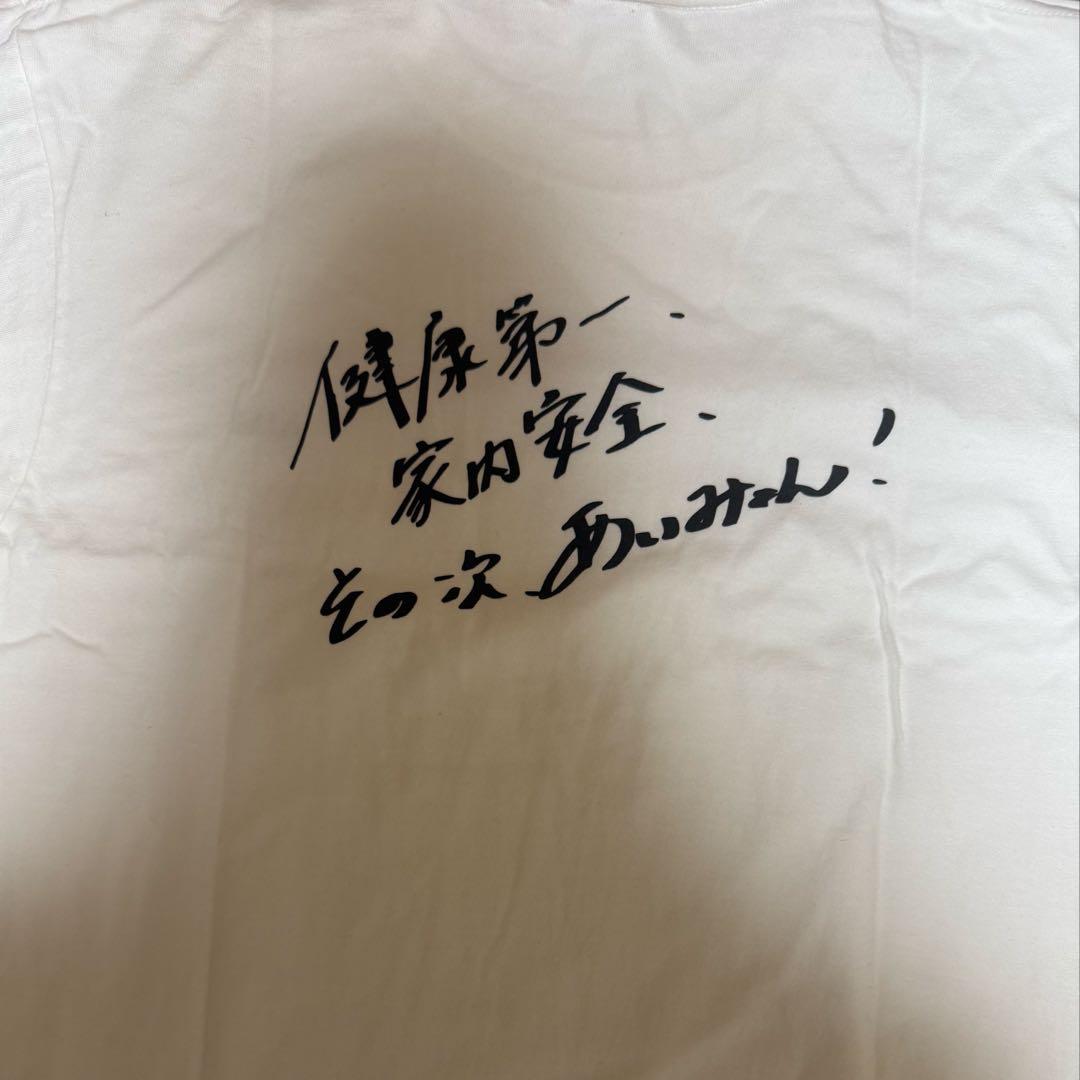 健康第一、
家内安全、
その次、あいみょん!